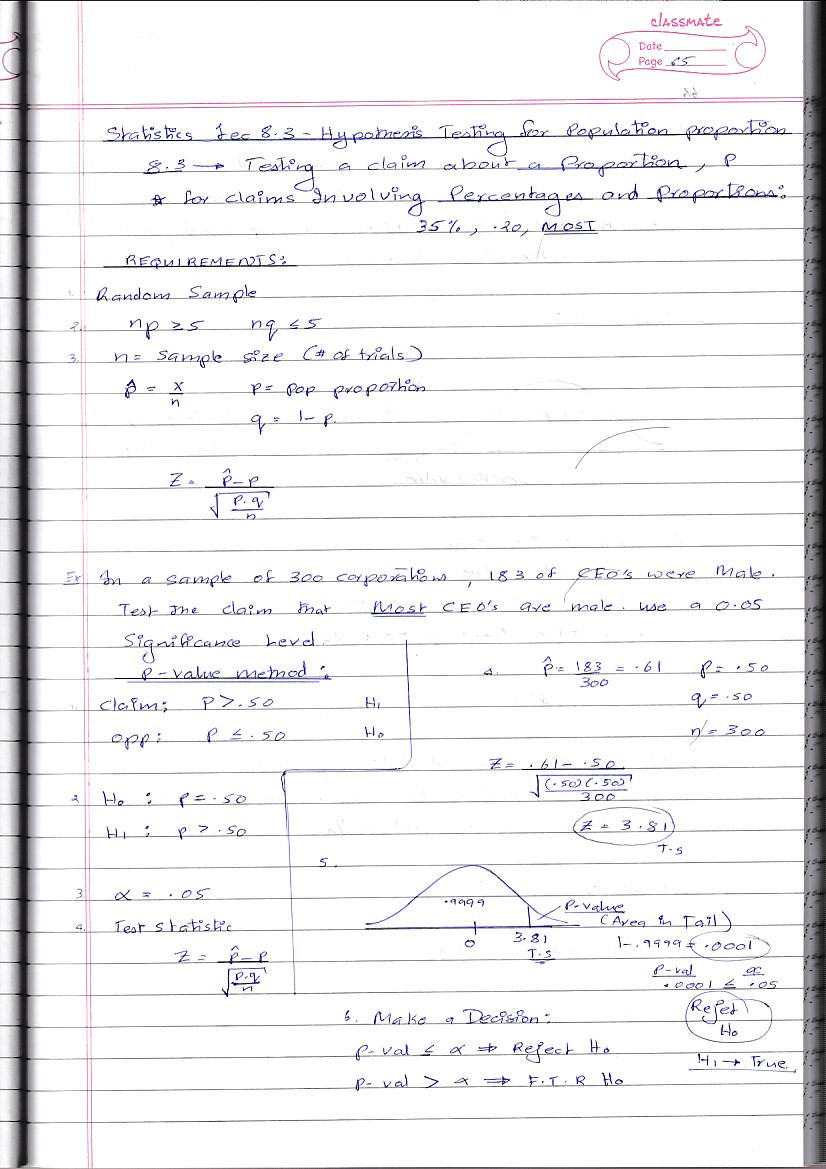 classmate
Date
Page 65
Statistics Lec 8.3 - Hypothesis Testing for Population proportion
8.3 → Testing a claim about a Proportion, P
* for claims Involving Percentages and Proportions:
35%, .20, MOST
REQUIREMENTS:
1. Random Sample
2. np ≥ 5 nq ≤ 5
3. n = Sample size (# of trials)
p̂ = x/n p = pop proportion
q = 1 - p.
Z = (p̂ - p) / √(p.q/n)
Ex In a sample of 300 corporations, 183 of CEO's were Male.
Test the claim that Most CEO's are male. use a 0.05
Significance Level.
P-value method:
1. Claim: P > .50 H₁
opp: P ≤ .50 H₀
2. H₀ : p = .50
H₁ : p > .50
3. α = .05
4. Test statistic
Z = (p̂ - p) / √(p.q/n)
4. p̂ = 183/300 = .61 p = .50
q = .50
n = 300
Z = (.61 - .50) / √((.50)(.50)/300)
Z = 3.81
T.S
5.
.9999
P-value
(Area in Tail)
0 3.81
T.S
1 - .9999 = .0001
P-val α
.0001 ≤ .05
Reject
H₀
H₁ → True
6. Make a Decision:
p-val ≤ α ⇒ Reject H₀
p-val > α ⇒ F.T.R H₀